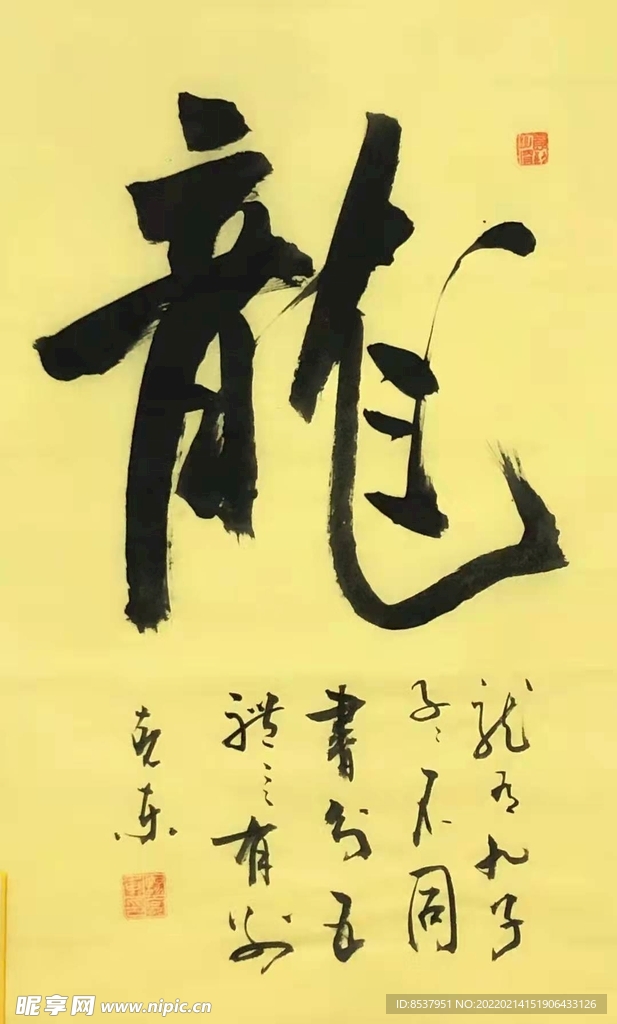 龍
龙有九子
子々不同
書分五
體々有别
克东
昵享网 www.nipic.cn
ID:8537951 NO:20220214151906433126